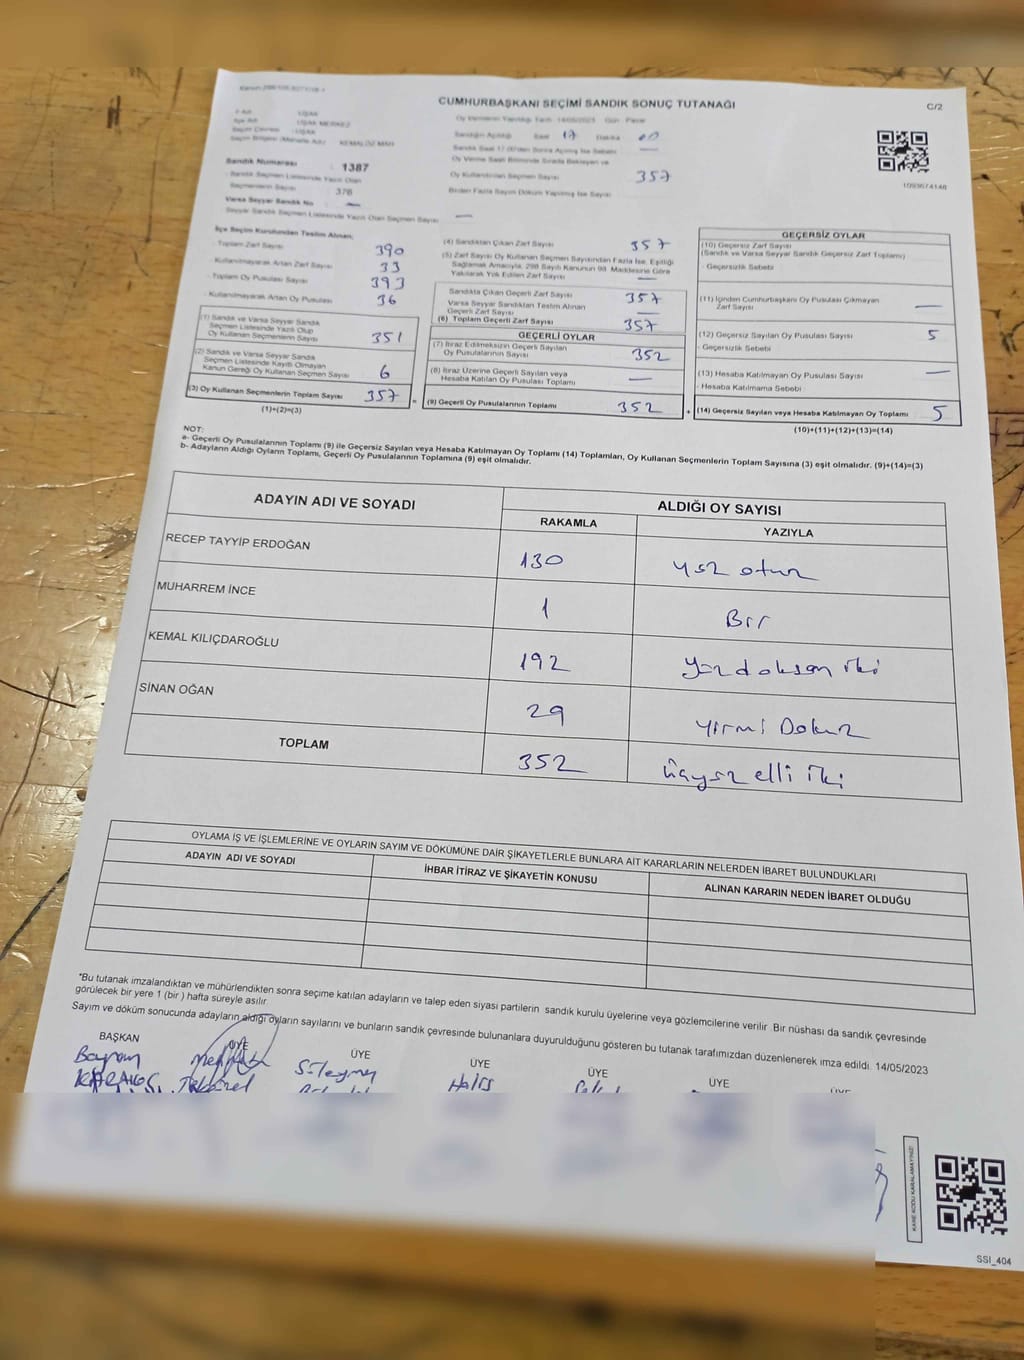 CUMHURBAŞKANI SEÇİMİ SANDIK SONUÇ TUTANAĞI
C/2
Oy Verilmenin Yapıldığı Tarih 14/05/2023 Gün Pazar
UŞAK
UŞAK MERKEZ
UŞAK
KEMALÖZ MAH
Sandığın Açıldığı Saat 17 Dakika 00
Sandık Saat 17.00'den Sonra Açılmış İse Sebebi —
Oy Verme Saati Bitiminde Sırada Bekleyen ve
Oy Kullandırılan Seçmen Sayısı 357
Birden Fazla Sayım Döküm Yapılmış İse Sayısı
1093674148
Sandık Numarası 1387
Sandık Seçmen Listesinde Yazılı Olan
Seçmenlerin Sayısı 378
Varsa Seyyar Sandık No —
Seyyar Sandık Seçmen Listesinde Yazılı Olan Seçmen Sayısı —
İlçe Seçim Kurulundan Teslim Alınan;
- Toplam Zarf Sayısı 390
- Kullanılmayarak Artan Zarf Sayısı 33
- Toplam Oy Pusulası Sayısı 393
- Kullanılmayarak Artan Oy Pusulası 36
(1) Sandık ve Varsa Seyyar Sandık
Seçmen Listesinde Yazılı Olup
Oy Kullanan Seçmenlerin Sayısı 351
(2) Sandık ve Varsa Seyyar Sandık
Seçmen Listesinde Kayıtlı Olmayan
Kanun Gereği Oy Kullanan Seçmen Sayısı 6
(3) Oy Kullanan Seçmenlerin Toplam Sayısı 357
(1)+(2)=(3)
(4) Sandıktan Çıkan Zarf Sayısı 357
(5) Zarf Sayısı Oy Kullanan Seçmen Sayısından Fazla İse, Eşitliği
Sağlamak Amacıyla, 298 Sayılı Kanunun 98. Maddesine Göre
Yakılarak Yok Edilen Zarf Sayısı —
Sandıkta Çıkan Geçerli Zarf Sayısı 357
Varsa Seyyar Sandıktan Teslim Alınan
Geçerli Zarf Sayısı —
(6) Toplam Geçerli Zarf Sayısı 357
GEÇERLİ OYLAR
(7) İtiraz Edilmeksizin Geçerli Sayılan
Oy Pusulalarının Sayısı 352
(8) İtiraz Üzerine Geçerli Sayılan veya
Hesaba Katılan Oy Pusulası Toplamı —
(9) Geçerli Oy Pusulalarının Toplamı 352
GEÇERSİZ OYLAR
(10) Geçersiz Zarf Sayısı
(Sandık ve Varsa Seyyar Sandık Geçersiz Zarf Toplamı)
- Geçersizlik Sebebi
(11) İçinden Cumhurbaşkanı Oy Pusulası Çıkmayan
Zarf Sayısı —
(12) Geçersiz Sayılan Oy Pusulası Sayısı 5
- Geçersizlik Sebebi
(13) Hesaba Katılmayan Oy Pusulası Sayısı —
- Hesaba Katılmama Sebebi
(14) Geçersiz Sayılan veya Hesaba Katılmayan Oy Toplamı 5
(10)+(11)+(12)+(13)=(14)
NOT:
a- Geçerli Oy Pusulalarının Toplamı (9) ile Geçersiz Sayılan veya Hesaba Katılmayan Oy Toplamı (14) Toplamları, Oy Kullanan Seçmenlerin Toplam Sayısına (3) eşit olmalıdır. (9)+(14)=(3)
b- Adayların Aldığı Oyların Toplamı, Geçerli Oy Pusulalarının Toplamına (9) eşit olmalıdır.
ADAYIN ADI VE SOYADI ALDIĞI OY SAYISI
RAKAMLA YAZIYLA
RECEP TAYYİP ERDOĞAN 130 yüz otuz
MUHARREM İNCE 1 Bir
KEMAL KILIÇDAROĞLU 192 Yüzdoksan iki
SİNAN OĞAN 29 yirmi Dokuz
TOPLAM 352 üçyüz elli iki
OYLAMA İŞ VE İŞLEMLERİNE VE OYLARIN SAYIM VE DÖKÜMÜNE DAİR ŞİKAYETLERLE BUNLARA AİT KARARLARIN NELERDEN İBARET BULUNDUKLARI
ADAYIN ADI VE SOYADI İHBAR İTİRAZ VE ŞİKAYETİN KONUSU ALINAN KARARIN NEDEN İBARET OLDUĞU
*Bu tutanak imzalandıktan ve mühürlendikten sonra seçime katılan adayların ve talep eden siyasi partilerin sandık kurulu üyelerine veya gözlemcilerine verilir. Bir nüshası da sandık çevresinde
görülecek bir yere 1 (bir) hafta süreyle asılır.
Sayım ve döküm sonucunda adayların aldığı oyların sayılarını ve bunların sandık çevresinde bulunanlara duyurulduğunu gösteren bu tutanak tarafımızdan düzenlenerek imza edildi. 14/05/2023
BAŞKAN ÜYE ÜYE ÜYE ÜYE ÜYE ÜYE
Bayram Mehmet Süleyman Halis
KARE KODU KARALAMAYINIZ!
SSI_404